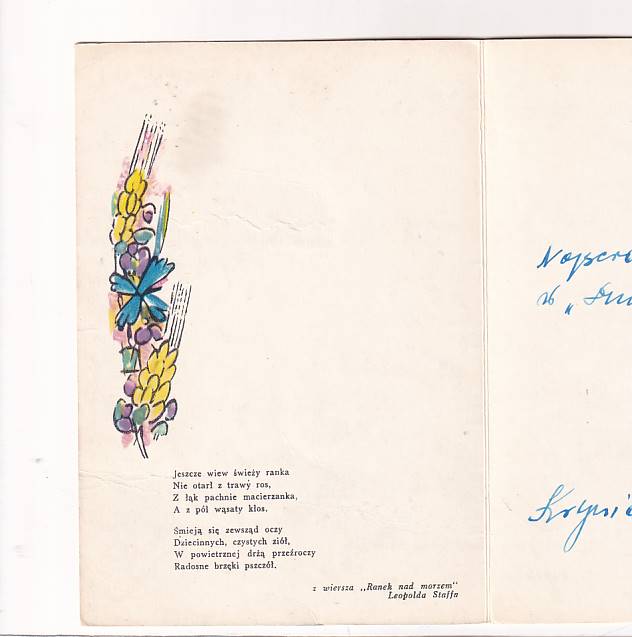 Jeszcze wiew świeży ranka
Nie otarł z trawy ros,
Z łąk pachnie macierzanka,
A z pól wąsaty kłos.
Śmieją się zewsząd oczy
Dziecinnych, czystych ziół,
W powietrznej drżą przeźroczy
Radosne brzęki pszczół.
z wiersza „Ranek nad morzem"
Leopolda Staffa
w „